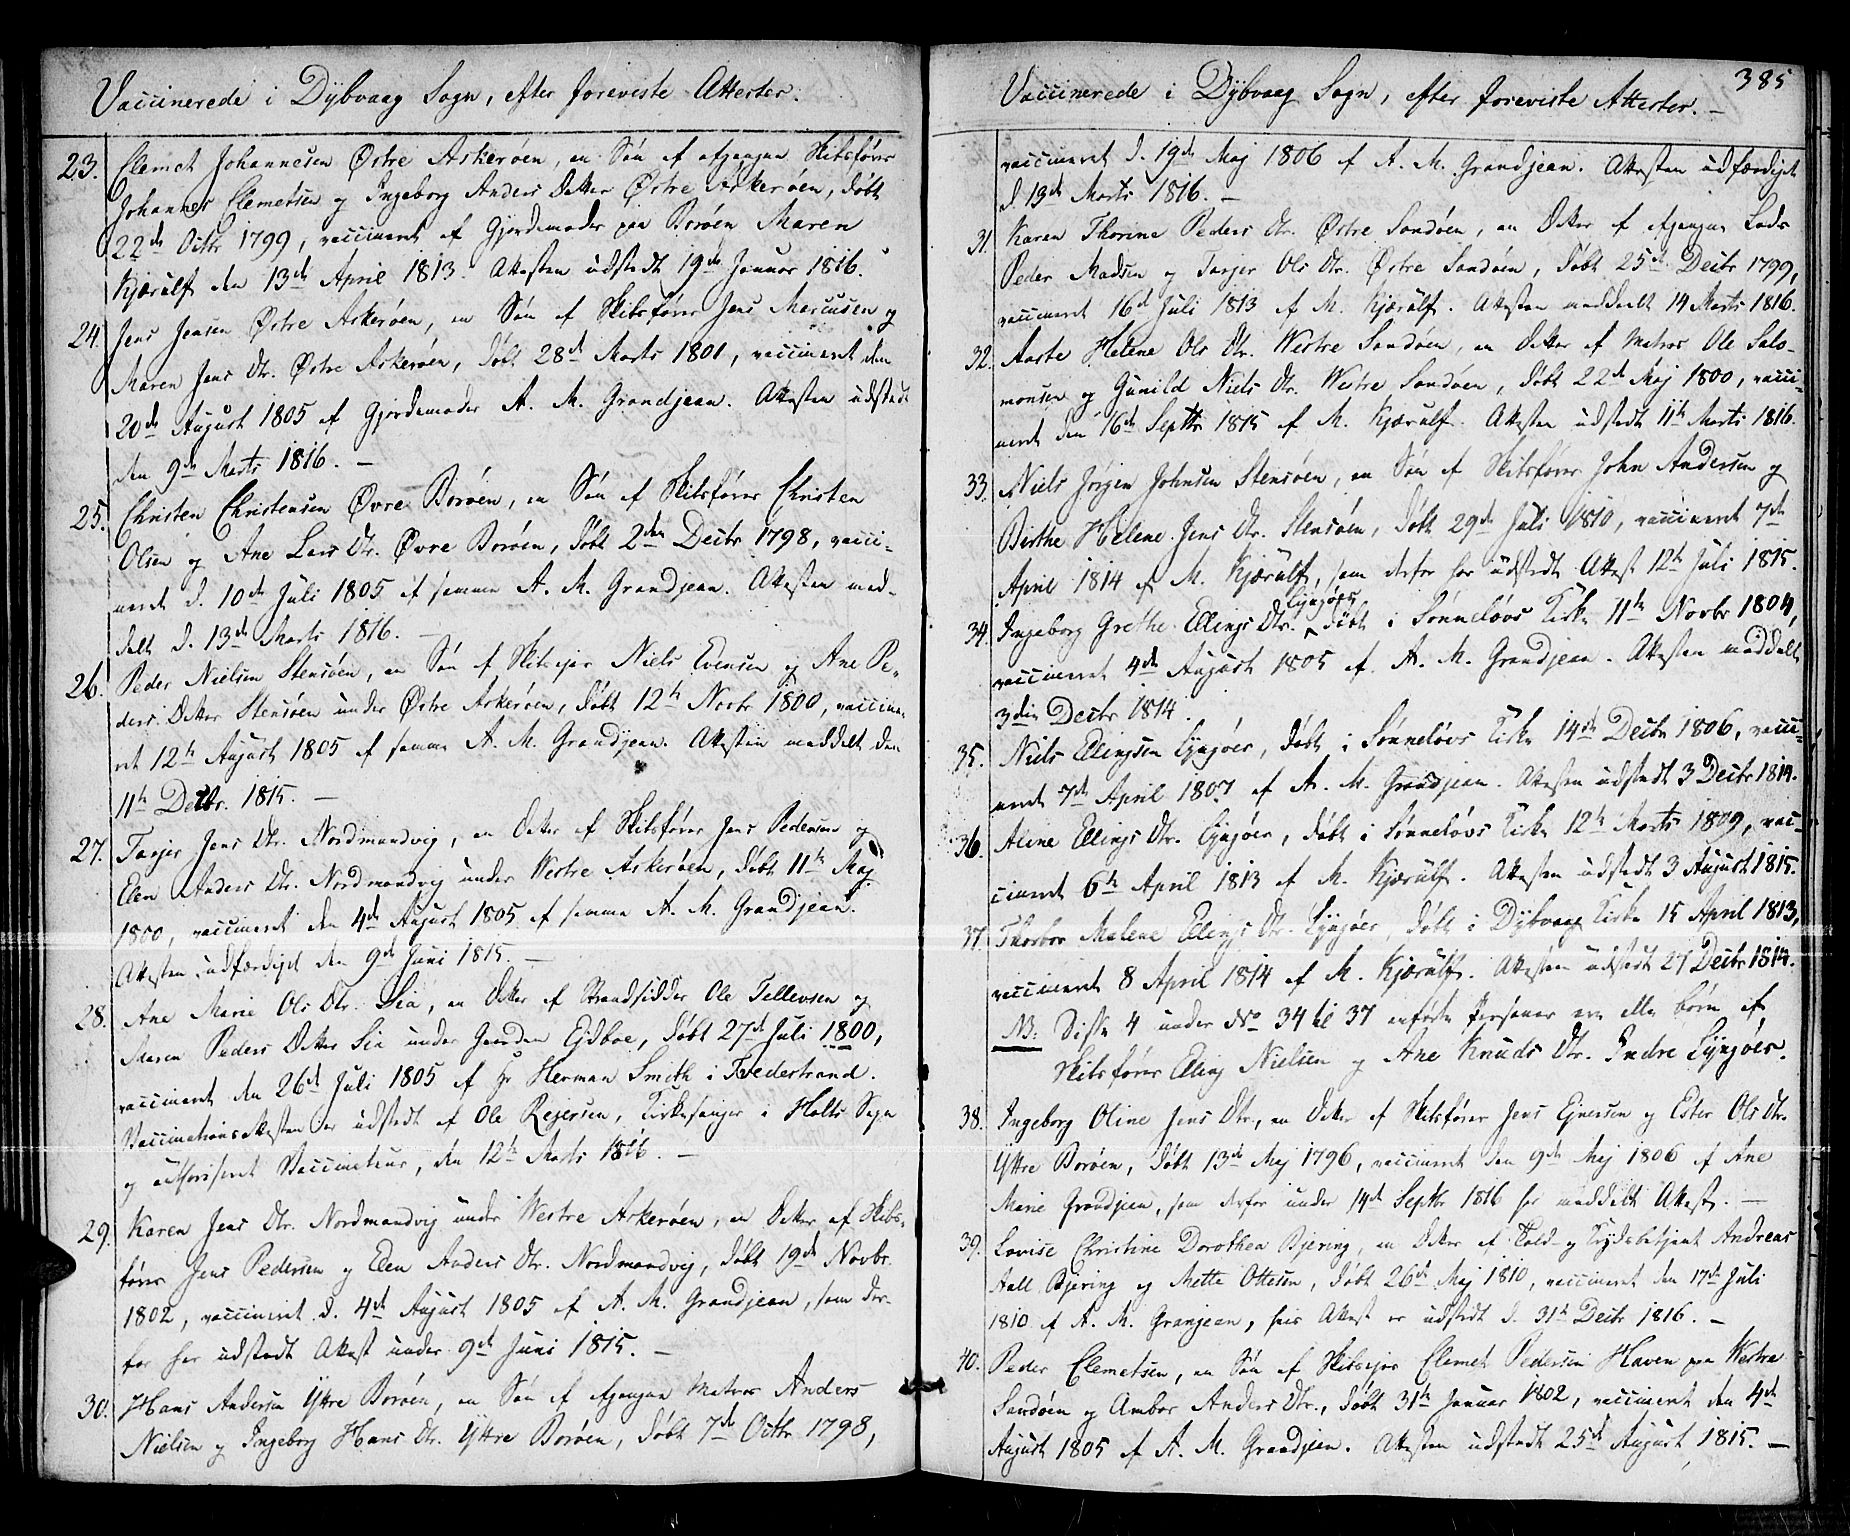 Vaccinerede i Dybvaag Sogn, efter foreviste Attester.
23. Clemet Johannesen Østre Askerøen, en Søn af afgangne Skibsfører
Johannes Clemetsen og Ingeborg Anders Datter Østre Askerøen, døbt
22de Octbr 1799, vaccineret af Gjordemoder paa Borøen Maren
Kjærulf den 13de April 1813. Attesten udstedt 19de Januar 1816.
24. Jens Jensen Østre Askerøen, en Søn af Skibsfører Jens Marcusen og
Maren Jens Dtr. Østre Askerøen, døbt 28de Marts 1801, vaccineret den
20de August 1805 af Gjordemoder A. M. Grandjean. Attesten udstedt
den 9de Marts 1816. —
25. Christen Christensen Øvre Borøen, en Søn af Skibsfører Christen
Olsen og Ane Lars Dtr. Øvre Borøen, døbt 2den Decbr 1798, vacci-
neret d. 10de Juli 1805 af samme A. M. Grandjean. Attesten med-
delt d. 13de Marts 1816. —
26. Peder Nielsen Stensøen, en Søn af Skibsejer Niels Evensen og Ane Pe-
ders Datter Stensøen under Østre Askerøen, døbt 12te Novbr 1800, vaccine-
ret 12te August 1805 af samme A. M. Grandjean. Attesten meddelt den
11te Decbr. 1815. —
27. Tarjer Jens Dtr. Nordmandvig, en Datter af Skibsfører Jens Pedersen og
Elen Anders Dtr. Nordmandvig under Westre Askerøen, døbt 11te Maj
1800, vaccineret den 4de August 1805 af samme A. M. Grandjean.
Attesten udfærdiget den 9de Juni 1815. —
28. Ane Marie Ols Dtr. Lia, en Datter af Strandsidder Ole Tellevsen og
Maren Peders Datter Lia under Gaarden Ejdboe, døbt 27de Juli 1800,
vaccineret den 26de Juli 1805 af Hr Herman Smith i Tvedestrand.
Vaccinationsattesten er udstedt af Ole Rejersen, Kirkesanger i Holts Sogn
og authoriseret Vaccinateur, den 12te Marts 1816. —
29. Karen Jens Dtr. Nordmandvig under Westre Askerøen, en Datter af Skibs-
fører Jens Pedersen og Elen Anders Dtr. Nordmandvig, døbt 19de Novbr
1802, vaccineret d. 4de August 1805 af A. M. Grandjean, som der-
for har udstedt Attest under 9de Juni 1815. —
30. Hans Andersen Yttre Borøen, en Søn af afgangne Matros Anders
Nielsen og Ingeborg Hans Dtr. Yttre Borøen, døbt 7de Octbr 1798,
385
Vaccinerede i Dybvaag Sogn, efter foreviste Attester. —
vaccineret d. 19de Maj 1806 af A. M. Grandjean. Attesten udfærdiget
d. 13de Marts 1816. —
31. Karen Thorine Peders Dtr. Østre Sandøen, en Datter af afgangne Lods
Peder Madsen og Tarjer Ols Dtr. Østre Sandøen, døbt 25de Decbr 1799,
vaccineret 16de Juli 1813 af M. Kjærulf. Attesten meddeelt 14 Marts 1816.
32. Aaste Helene Ols Dtr. Westre Sandøen, en Datter af Matros Ole Salo-
monsen og Gunild Niels Dtr. Westre Sandøen, døbt 22de Maj 1800, vacci-
neret den 16de Septbr 1815 af M. Kjærulf. Attesten udstedt 11te Marts 1816.
33. Niels Jørgen Johnsen Stensøen, en Søn af Skibsfører John Andersen og
Birthe Helene Jens Dtr. Stensøen, døbt 29de Juli 1810, vaccineret 7de
April 1814 af M. Kjærulf, som derfor har udstedt Attest 12te Juli 1815.
34. Ingeborg Grethe Ellings Dtr. Lyngøer, døbt i Sønneløvs Kirke 11te Novbr 1804,
vaccineret 4de August 1805 af A. M. Grandjean. Attesten meddelt
3die Decbr 1814.
35. Niels Ellingsen Lyngøer, døbt i Sønneløvs Kirke 14de Decbr 1806, vacci-
neret 7de April 1807 af A. M. Grandjean. Attesten udstedt 3 Decbr 1814.
36. Alene Ellings Dtr. Lyngøer, døbt i Sønneløvs Kirke 12te Marts 1809, vac-
cineret 6te April 1813 af M. Kjærulf. Attesten udstedt 3 August 1815.
37. Thorbor Malene Ellings Dtr. Lyngøer, døbt i Dybvaag Kirke 15 April 1813,
vaccineret 8 April 1814 af M. Kjærulf. Attesten udstedt 27 Decbr 1814.
NB: Disse 4 under No 34 til 37 anførte Personer ere alle børn af
Skibsfører Elling Nielsen og Ane Knuds Dtr. Indre Lyngøer.
38. Ingeborg Oline Jens Dtr, en Datter af Skibsfører Jens Ejnersen og Ester Ols Dtr.
Yttre Borøen, døbt 13de Maj 1796, vaccineret den 9de Maj 1806 af Ane
Marie Grandjean, som derfor under 14de Septbr 1816 har meddelt Attest. —
39. Lovise Christine Dorothea Bjering, en Datter af Told- og Krydsbetjent Andreas
Aall Bjering og Mette Ottesen, døbt 26de Maj 1810, vaccineret den 17de Juli
1810 af A. M. Granjean, hvis Attest er udstedt d. 31te Decbr 1816. —
40. Peder Clemetsen, en Søn af Skibsejer Clemet Pedersen Haven paa Westre
Sandøen og Ambor Anders Dtr., døbt 31te Januar 1802, vaccineret den 4de
August 1805 af A. M. Grandjean. Attesten udstedt 25de August 1815. —